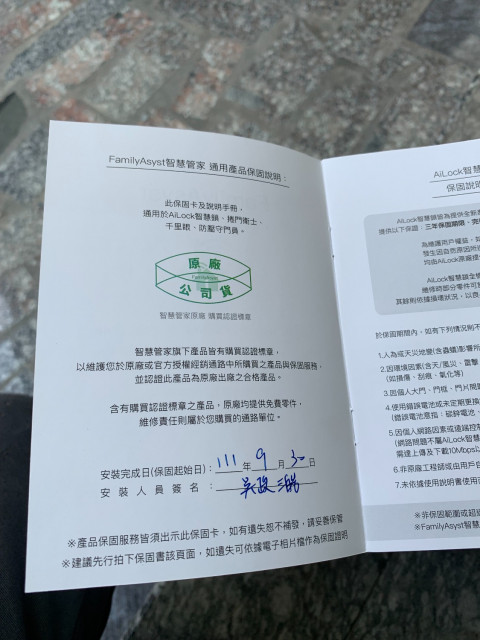 FamilyAsyst智慧管家 通用產品保固說明：
此保固卡及說明手冊，
適用於AiLock智慧鎖、捲門衛士、
千里眼、防壓守門員。
原廠
FamilyAsyst
公司貨
智慧管家原廠 購買認證標章
智慧管家旗下產品皆有購買認證標章，
以維護您於原廠或官方授權經銷通路中所購買之產品與保固服務，
並認證此產品為原廠出廠之合格產品。
含有購買認證標章之產品，原廠均提供免費零件，
維修責任則屬於您購買的通路單位。
安裝完成日(保固起始日)：111年9月30日
安裝人員簽名：吳政
※產品保固服務皆須出示此保固卡，如有遺失恕不補發，請妥善保管
※建議先行拍下保固書該頁面，如遺失可依據電子相片檔作為保固證明
AiLock智慧
保固說明
AiLock智慧鎖皆為提供全新
提供以下保證：三年保固期限，完
為維護用戶權益，如
發生因自然原因所
均由AiLock原廠提
AiLock智慧鎖全
維修時部分零件可
其餘則依據損壞狀況，以良
於保固期間內，如有下列情況則不
1.人為或天災地變(含蟲蟻)影響所
2.因環境因素(含天/風災、雷擊
(如損傷、刮痕、氧化等)
3.因個人大門、門框、門片問題
4.使用錯誤電池或未定期更換
(錯誤電池意指：碳鋅電池、
5.因個人網路因素或遠端控制
(網路問題不屬AiLock智慧
需達上傳及下載10Mbps以
6.非原廠工程師或由用戶自
7.未依據使用說明書使用
※非保固範圍或超過
※FamilyAsyst智慧